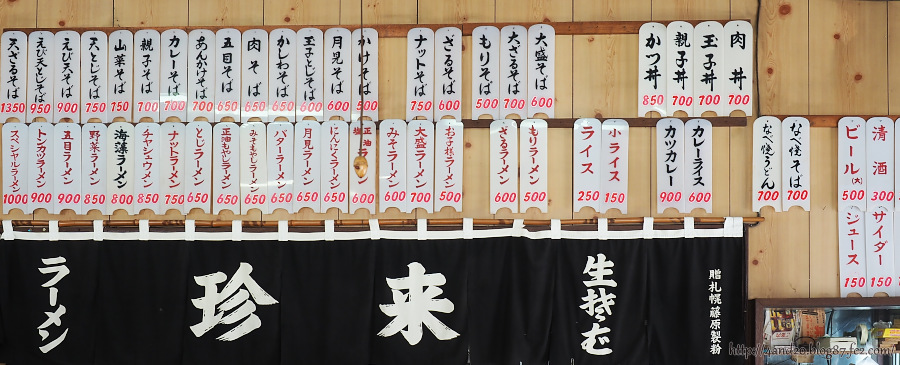 天ざるそば 1350
えび天とじそば 950
えび天そば 900
天とじそば 750
山菜そば 750
親子そば 700
カレーそば 700
あんかけそば 700
五目そば 650
肉そば 650
かしわそば 650
玉子とじそば 600
月見そば 600
かけそば 500
ナットそば 750
ざるそば 600
もりそば 500
大ざるそば 700
大盛そば 600
かつ丼 850
親子丼 700
玉子丼 700
肉丼 700
スペシャルラーメン 1000
トンカツラーメン 900
五目ラーメン 900
野菜ラーメン 850
海藻ラーメン 800
チャシュウメン 850
ナットラーメン 750
とじラーメン 650
正油もやしラーメン 650
みそもやしラーメン 650
バターラーメン 650
月見ラーメン 650
にんにくラーメン 650
正油 塩 ラーメン 600
みそラーメン 600
大盛ラーメン 700
お子様ラーメン 500
ざるラーメン 600
もりラーメン 500
ライス 250
小ライス 150
カツカレー 900
カレーライス 600
なべ焼うどん 700
なべ焼そば 700
ビール(大) 500
清酒 300
ジュース 150
サイダー 150
ラーメン
珍来
生そば
贈 札幌藤原製粉
http://zand20.blog87.fc2.com/